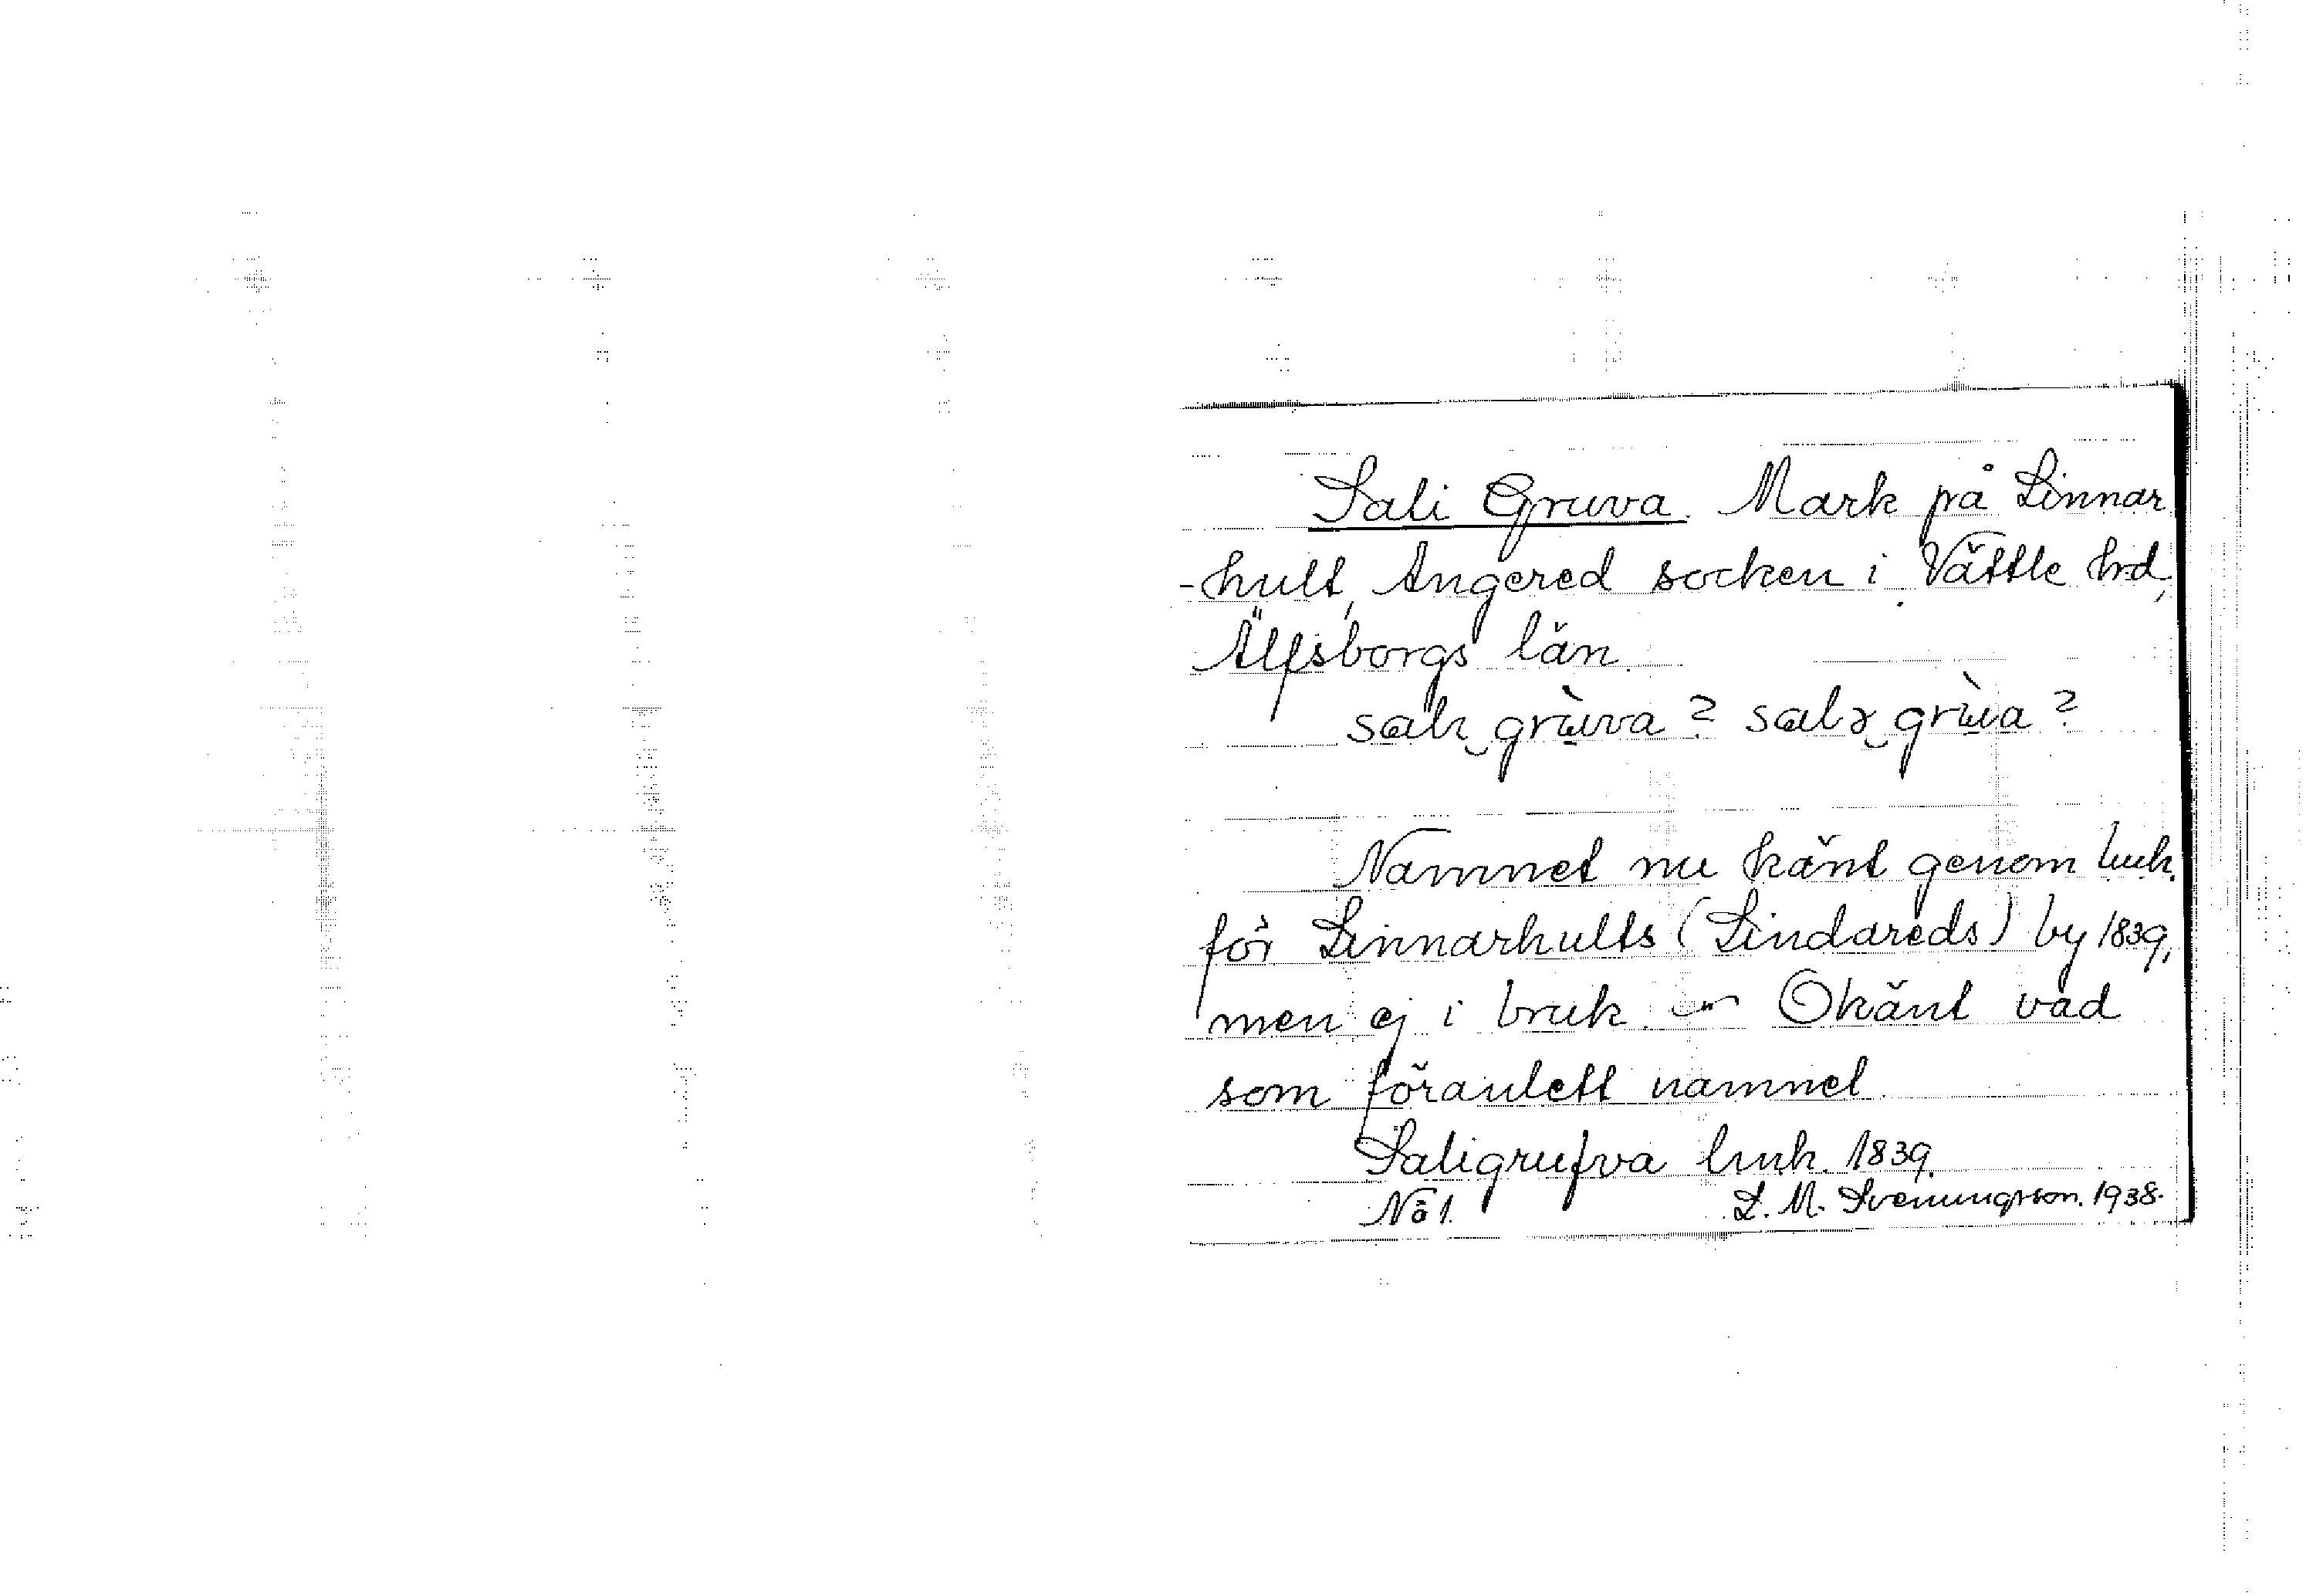 Sali Gruva. Mark på Linnar
-hult, Angered socken i Vättle hd,
Älfsborgs län.
grùva? grùa?
Namnet nu känt genom
för Linnarhults (Lindareds) by 1839,
men ej i bruk. — Okänt vad
som föranlett namnet
Saligrufva 1839.
No 1. L. M. Svenungsson. 1938.